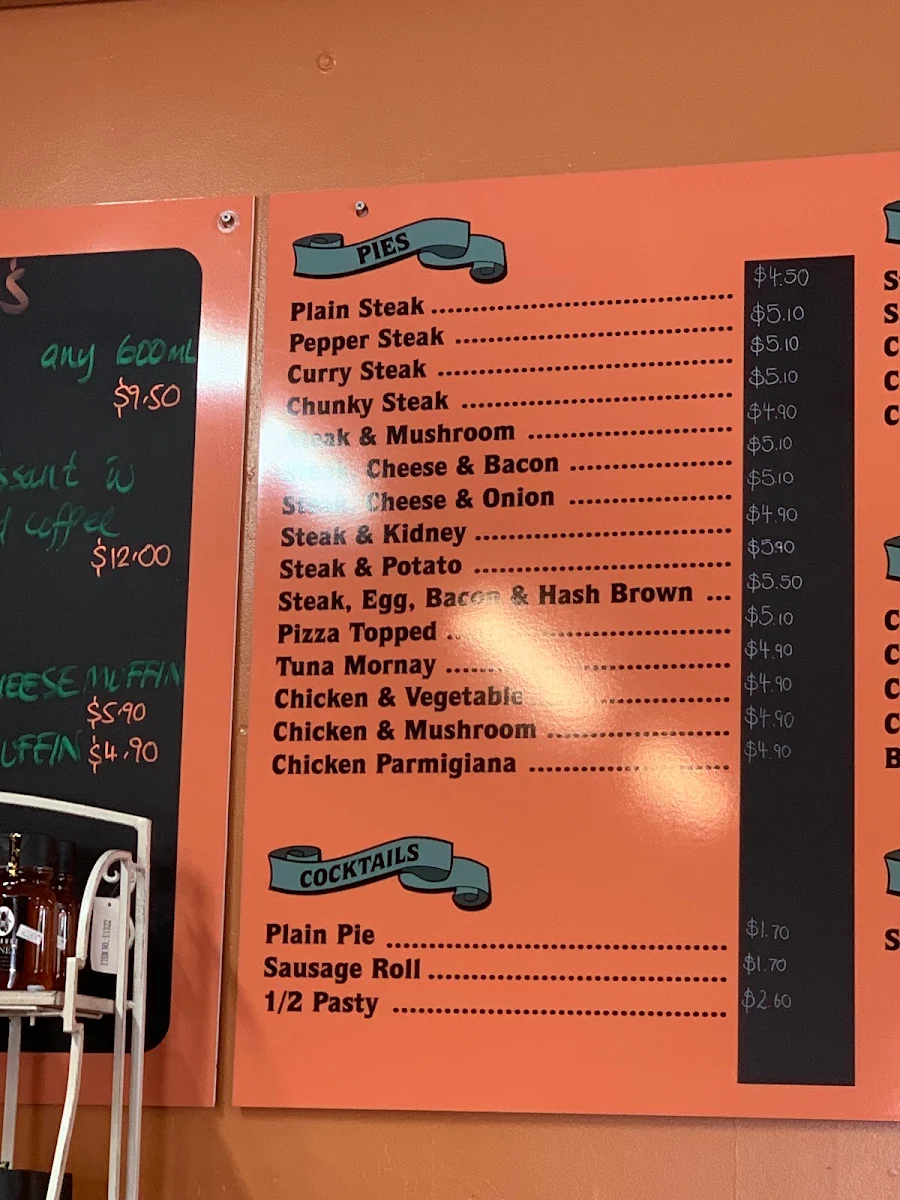 any 600ml
$9.50
$12.00
MUFFIN
$5.90
$4.90
PIES
Plain Steak ........ $4.50
Pepper Steak ........ $5.10
Curry Steak ........ $5.10
Chunky Steak ........ $5.10
Steak & Mushroom ........ $4.90
Steak, Cheese & Bacon ........ $5.10
Steak, Cheese & Onion ........ $5.10
Steak & Kidney ........ $4.90
Steak & Potato ........ $5.90
Steak, Egg, Bacon & Hash Brown ... $5.50
Pizza Topped ........ $5.10
Tuna Mornay ........ $4.90
Chicken & Vegetable ........ $4.90
Chicken & Mushroom ........ $4.90
Chicken Parmigiana ........ $4.90
COCKTAILS
Plain Pie ........ $1.70
Sausage Roll ........ $1.70
1/2 Pasty ........ $2.60